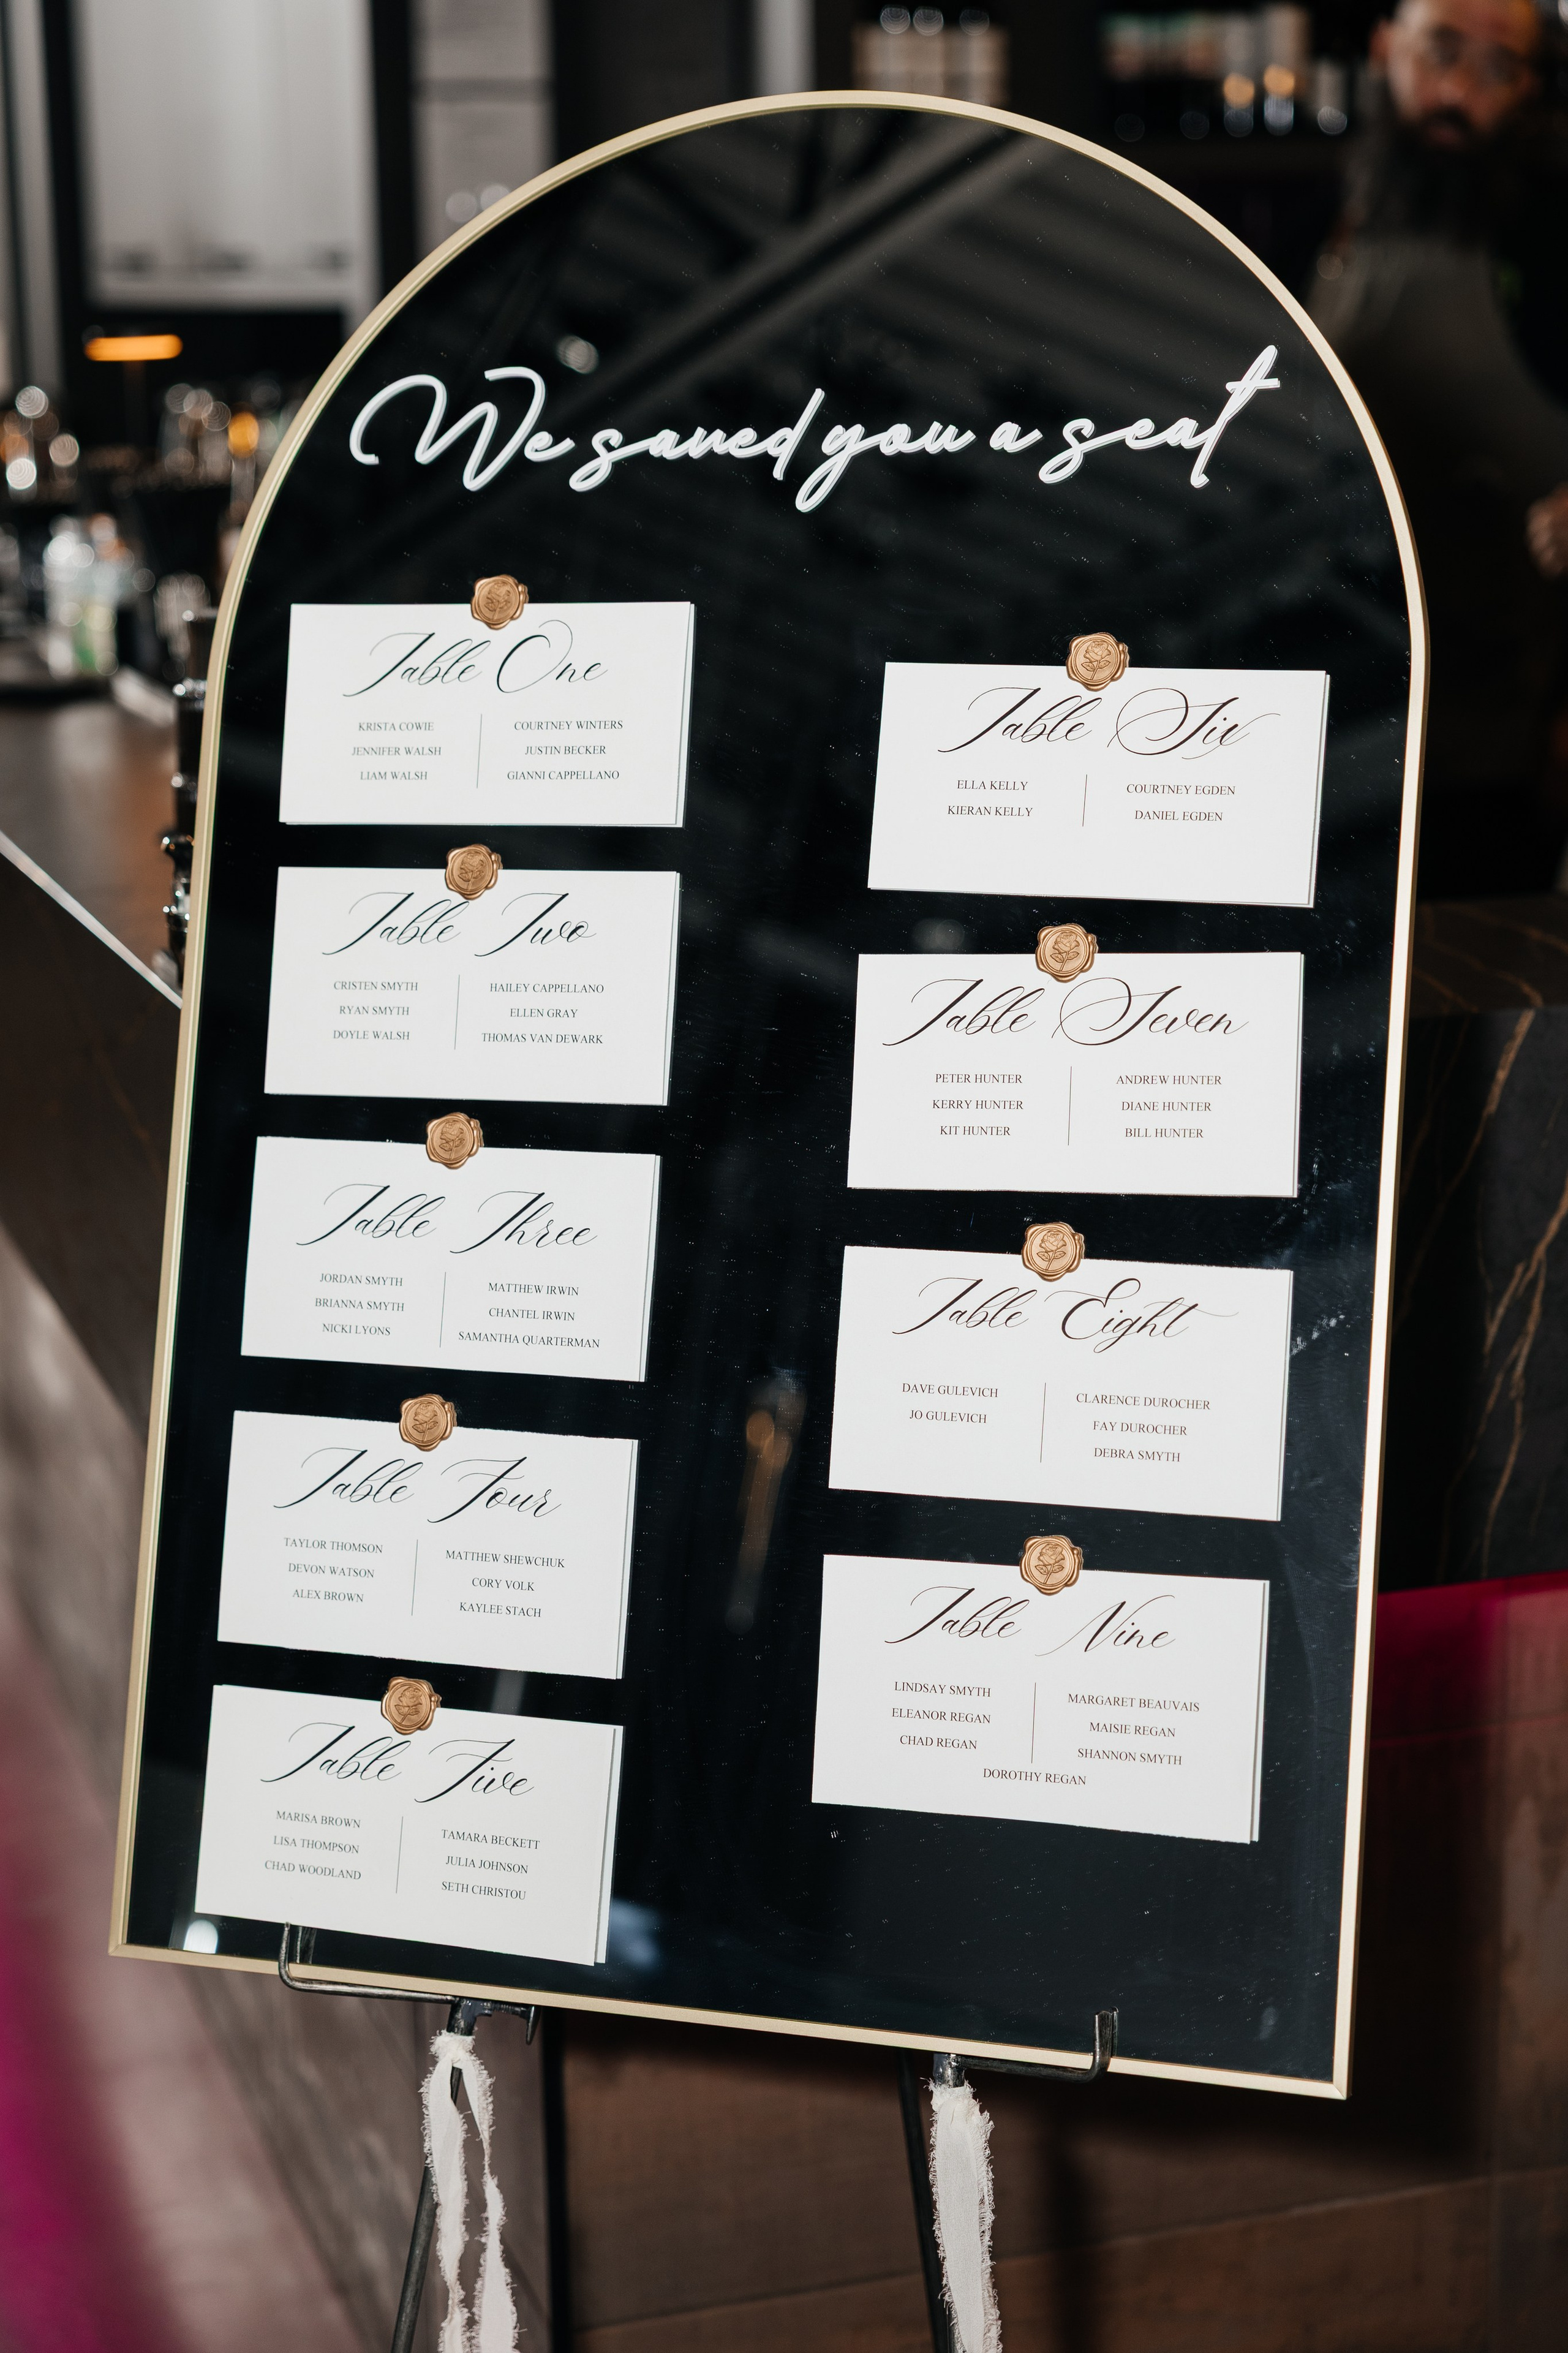 We saved you a seat
Table One
KRISTA COWIE
JENNIFER WALSH
LIAM WALSH
COURTNEY WINTERS
JUSTIN BECKER
GIANNI CAPPELLANO
Table Two
CRISTEN SMYTH
RYAN SMYTH
DOYLE WALSH
HAILEY CAPPELLANO
ELLEN GRAY
THOMAS VAN DEWARK
Table Three
JORDAN SMYTH
BRIANNA SMYTH
NICKI LYONS
MATTHEW IRWIN
CHANTEL IRWIN
SAMANTHA QUARTERMAN
Table Four
TAYLOR THOMSON
DEVON WATSON
ALEX BROWN
MATTHEW SHEWCHUK
CORY VOLK
KAYLEE STACH
Table Five
MARISA BROWN
LISA THOMPSON
CHAD WOODLAND
TAMARA BECKETT
JULIA JOHNSON
SETH CHRISTOU
Table Six
ELLA KELLY
KIERAN KELLY
COURTNEY EGDEN
DANIEL EGDEN
Table Seven
PETER HUNTER
KERRY HUNTER
KIT HUNTER
ANDREW HUNTER
DIANE HUNTER
BILL HUNTER
Table Eight
DAVE GULEVICH
JO GULEVICH
CLARENCE DUROCHER
FAY DUROCHER
DEBRA SMYTH
Table Nine
LINDSAY SMYTH
ELEANOR REGAN
CHAD REGAN
MARGARET BEAUVAIS
MAISIE REGAN
SHANNON SMYTH
DOROTHY REGAN